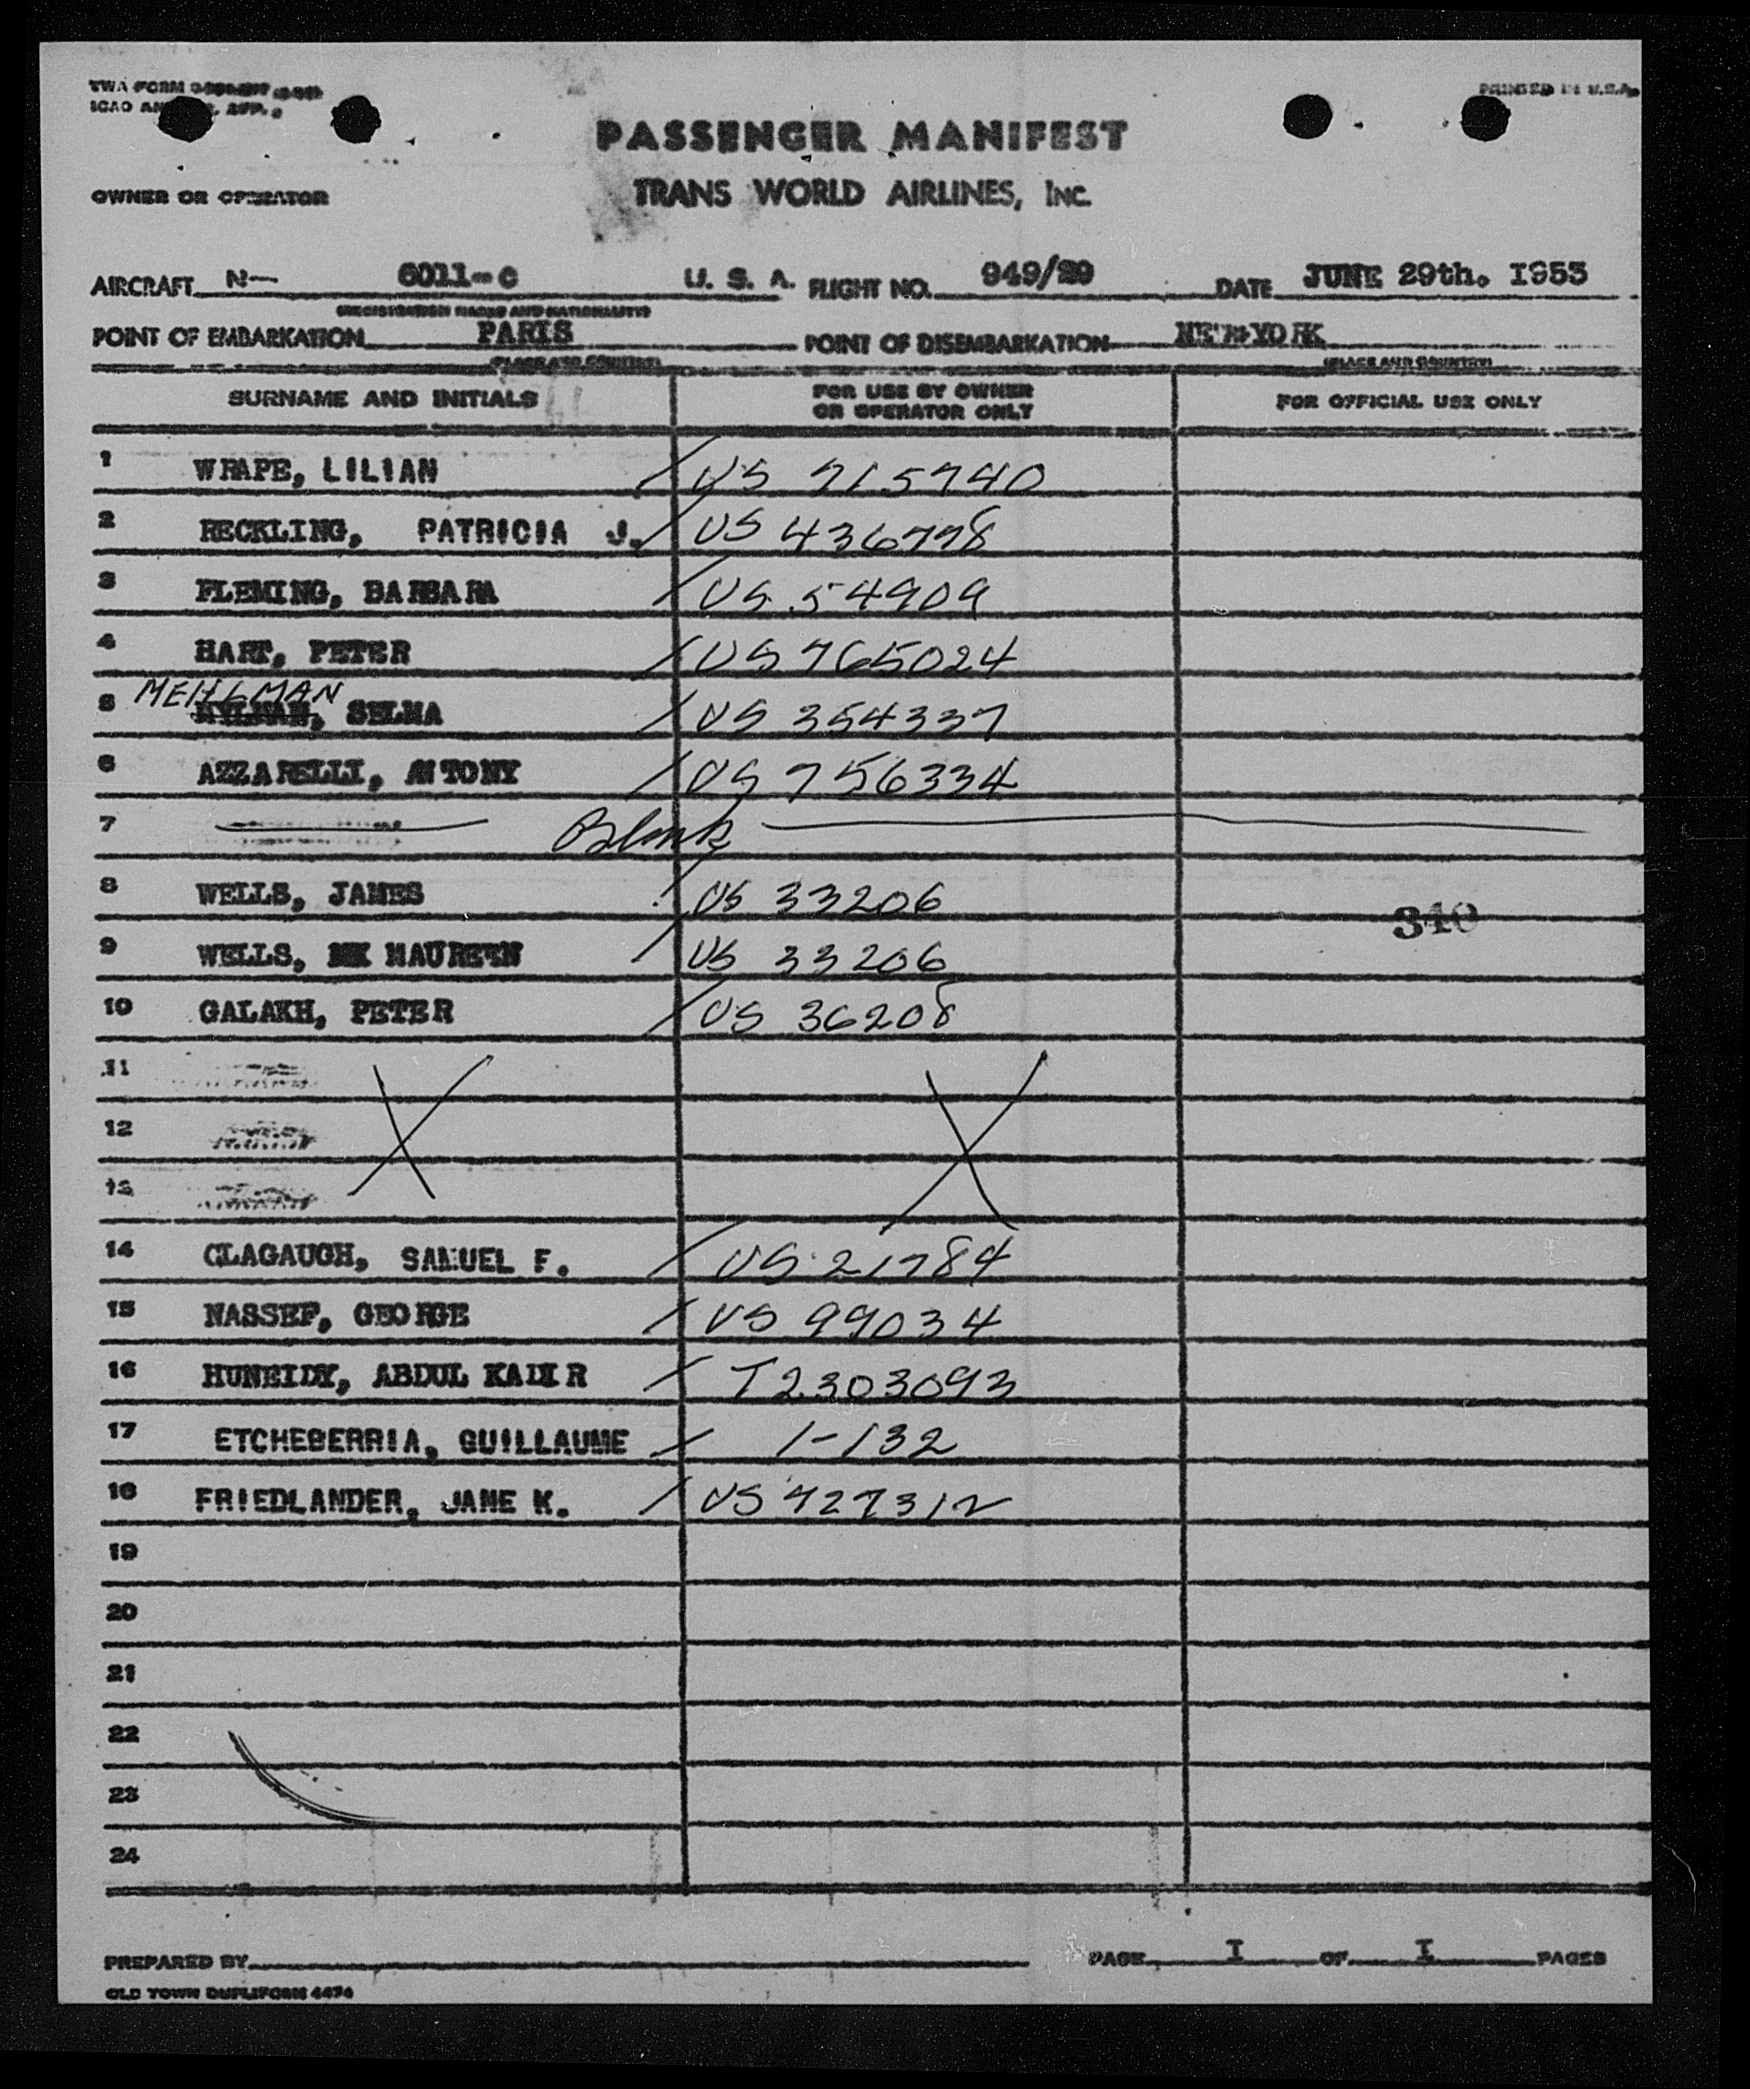 TWA FORM
ICAO
PRINTED IN U.S.A.
PASSENGER MANIFEST
OWNER OR OPERATOR
TRANS WORLD AIRLINES, INC.
AIRCRAFT N— 6011-C U. S. A. FLIGHT NO. 949/29 DATE JUNE 29th. I953
(REGISTRATION MARKS AND NATIONALITY)
POINT OF EMBARKATION PARIS POINT OF DISEMBARKATION NEW-YORK
(PLACE AND COUNTRY) (PLACE AND COUNTRY)
SURNAME AND INITIALS FOR USE BY OWNER OR OPERATOR ONLY FOR OFFICIAL USE ONLY
1 WRAPE, LILIAN / US 715740
2 RECKLING, PATRICIA J. / US 436778
3 FLEMING, BARBARA / US 54909
4 HART, PETER / US 765024
MEHLMAN
5 SELMA / US 354337
6 AZZARELLI, ANTONY / US 756334
7 Blank
8 WELLS, JAMES / US 33206
340
9 WELLS, MAUREEN / US 33206
10 GALAKH, PETER / US 36208
11
12
13
14 CLAGAUGH, SAMUEL F. / US 21784
15 NASSEF, GEORGE / US 99034
16 HUNEIDY, ABDUL KADIR / T2303093
17 ETCHEBERRIA, GUILLAUME / 1-132
18 FRIEDLANDER, JANE K. / US 727312
19
20
21
22
23
24
PREPARED BY PAGE I OF I PAGES
OLD TOWN DUPLIFORM 4474